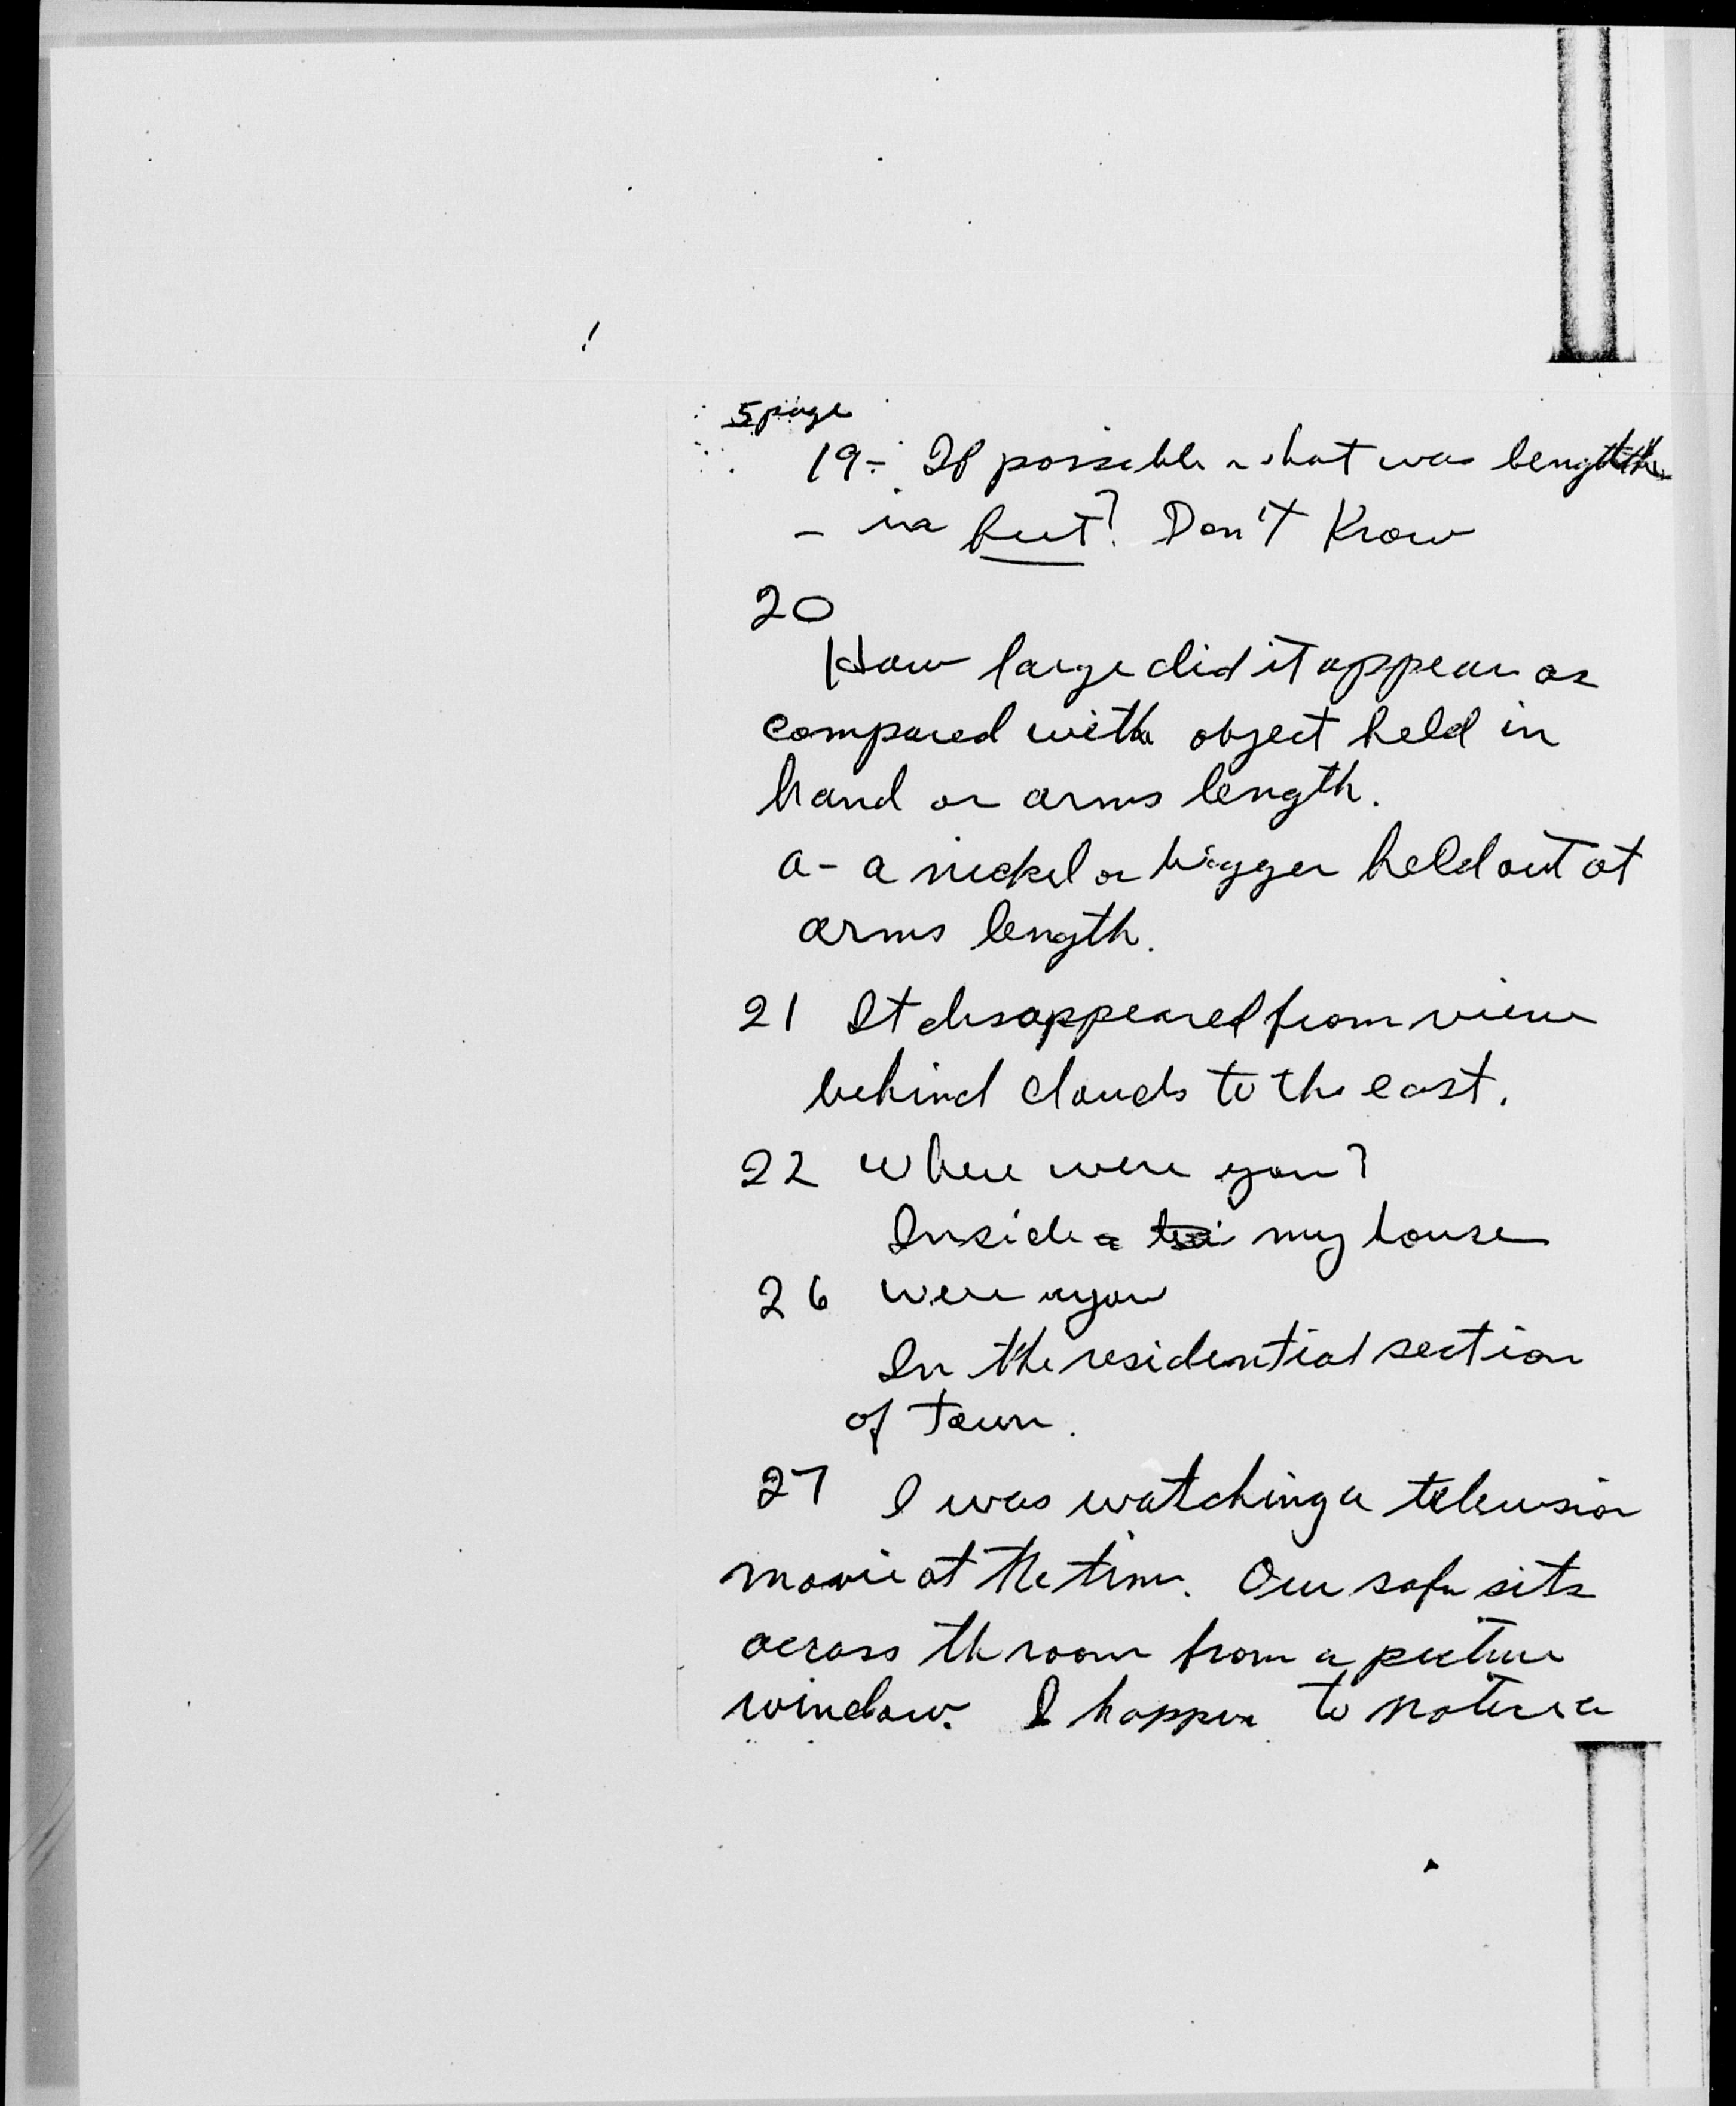 5 page
19- If possible what was length
- in feet? Don't Know
20
How large did it appear as
compared with object held in
hand or arms length.
a- a nickel or bigger held out at
arms length.
21 It disappeared from view
behind clouds to the east.
22 Where were you?
Inside a my house
26 were you
In the residential section
of town.
27 I was watching a television
movie at the time. Our sofa sits
across th room from a picture
window. I happen to notice a